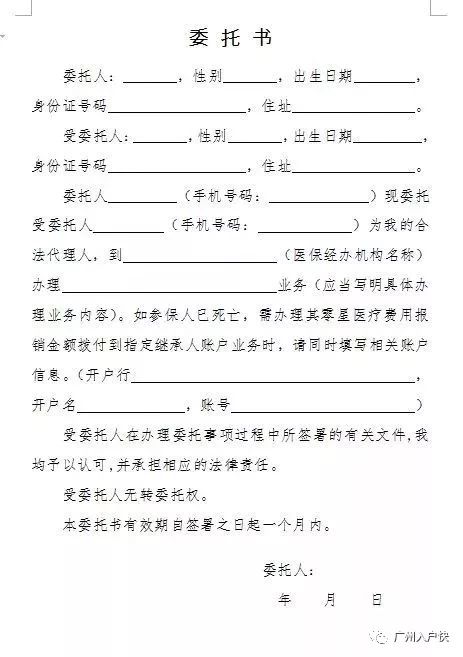 委 托 书
委托人：________，性别________，出生日期________，
身份证号码____________________，住址__________________。
受委托人：________，性别________，出生日期__________，
身份证号码____________________，住址__________________。
委托人__________（手机号码：______________）现委托
受委托人__________（手机号码：______________）为我的合
法代理人，到______________________（医保经办机构名称）
办理______________________________业务（应当写明具体办
理业务内容）。如参保人已死亡，需办理其零星医疗费用报
销金额拨付到指定继承人账户业务时，请同时填写相关账户
信息。（开户行________________________________________，
开户名________________，账号__________________________）
受委托人在办理委托事项过程中所签署的有关文件，我
均予以认可，并承担相应的法律责任。
受委托人无转委托权。
本委托书有效期自签署之日起一个月内。
委托人：
年 月 日
广州入户快